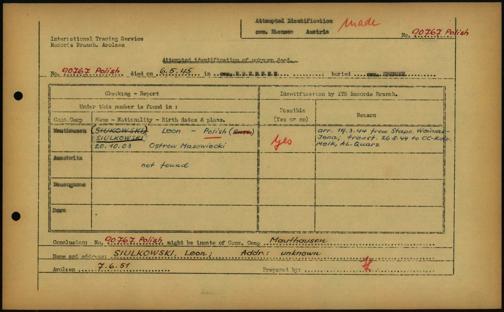 Attempted Identification
com. Ebensee Austria
made
No. 90767 Polish
International Tracing Service
Records Branch, Arolsen
Attempted identification of unknown dead.
No. 90767 Polish died on 6.5.45 in com. EBENSEE buried com. EBENSEE
Checking - Report
Identification by ITS Records Branch.
Under this number is found in:
Possible
(Yes or no)
Reason
Conc.Camp Name - Nationality - Birth dates & place.
Mauthausen (SIUKOWSKI) Leon - Polish
SIULKOWSKI
20.10.03 Ostrow Mazowiecki
Yes
arr. 14.3.44 from Stapo
transf. 26.5.44 to CC-Kdo
Melk, AL-Quarz
Auschwitz
not found
Conclusion: No. 90767 Polish might be inmate of Conc. Camp Mauthausen
Name and address: SIULKOWSKI, Leon; Addr: unknown
Arolsen 7.6.51 Prepared by: